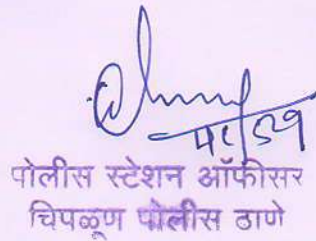 पोलीस स्टेशन ऑफीसर
चिपळूण पोलीस ठाणे